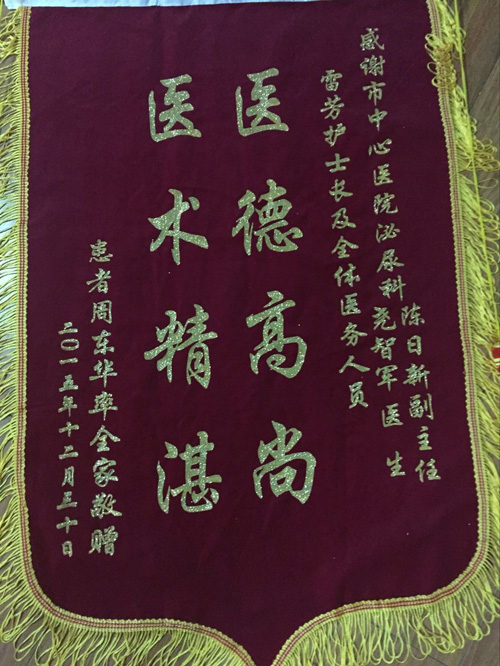 感谢市中心医院泌尿科陈日新副主任
尧智军医生
雷芳护士长及全体医务人员
医德高尚
医术精湛
患者周东华率全家敬赠
二〇一五年十二月三十日